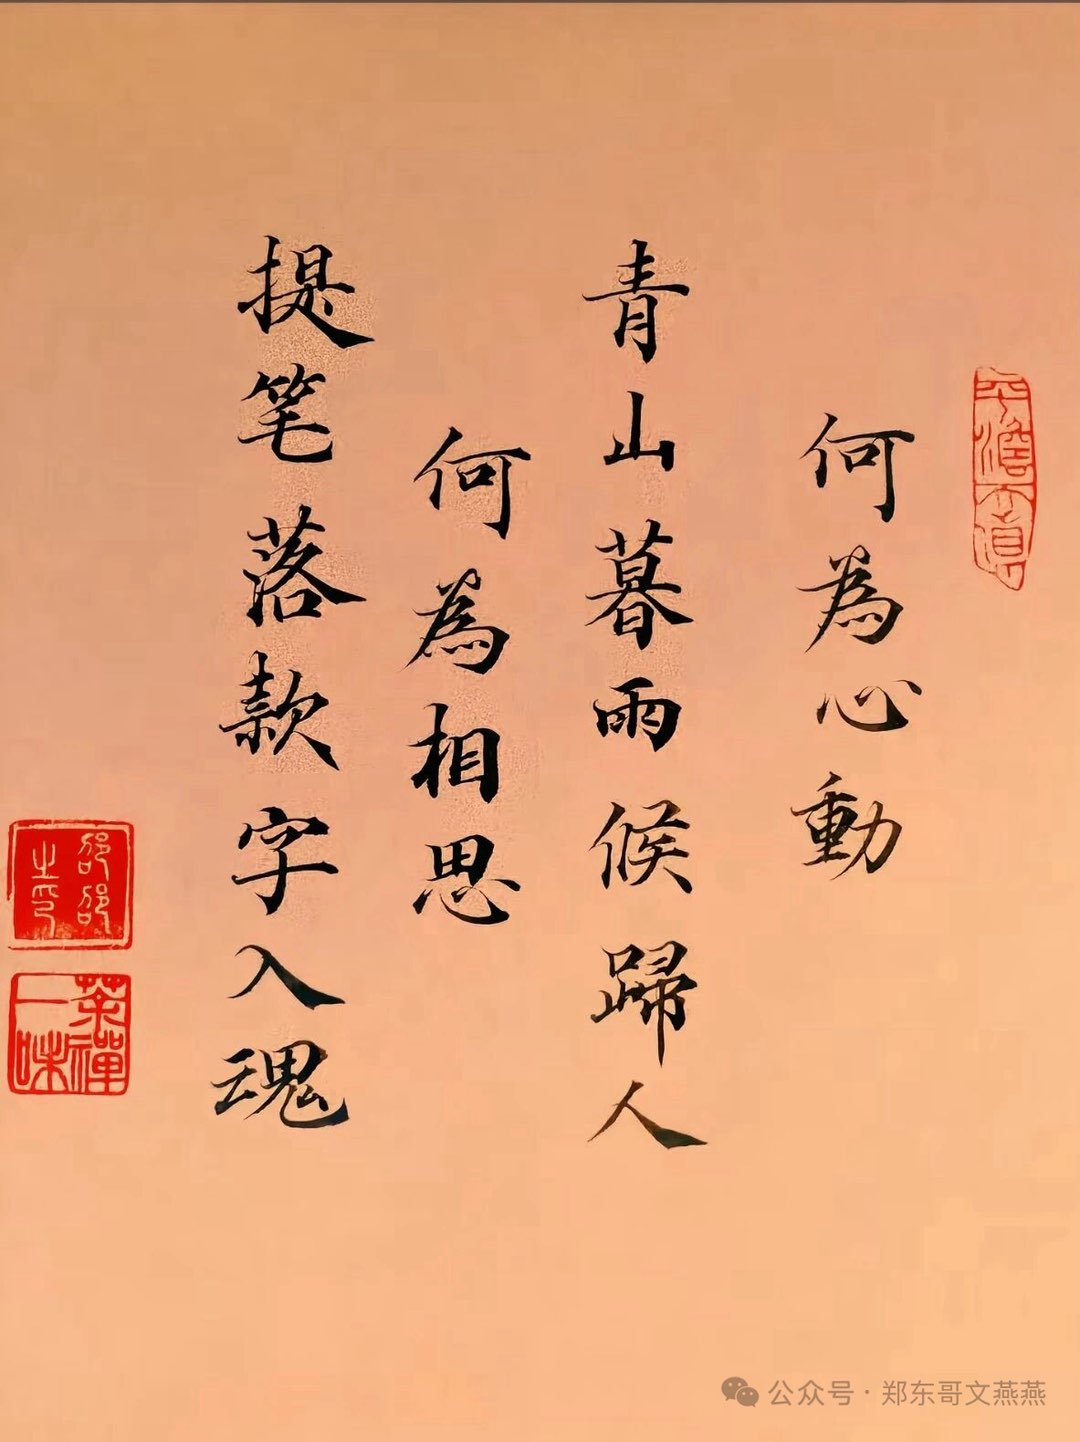 平澹天真
何為心動
青山暮雨候歸人
何為相思
提笔落款字入魂
邵邵之印
茶禪一味
公众号·郑东哥文燕燕